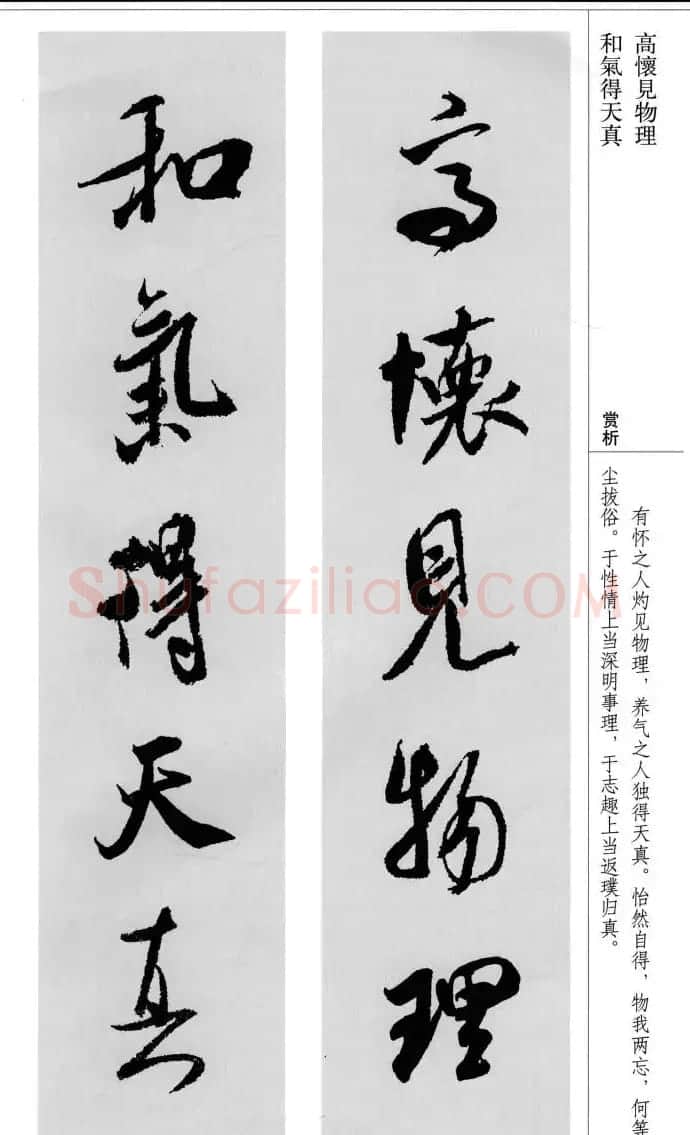 高懷見物理
和氣得天真
赏析
有怀之人灼见物理，养气之人独得天真。怡然自得，物我两忘，何等
尘拔俗。于性情上当深明事理，于志趣上当返璞归真。
高懷見物理
和氣得天真
Shufaziliao.COM